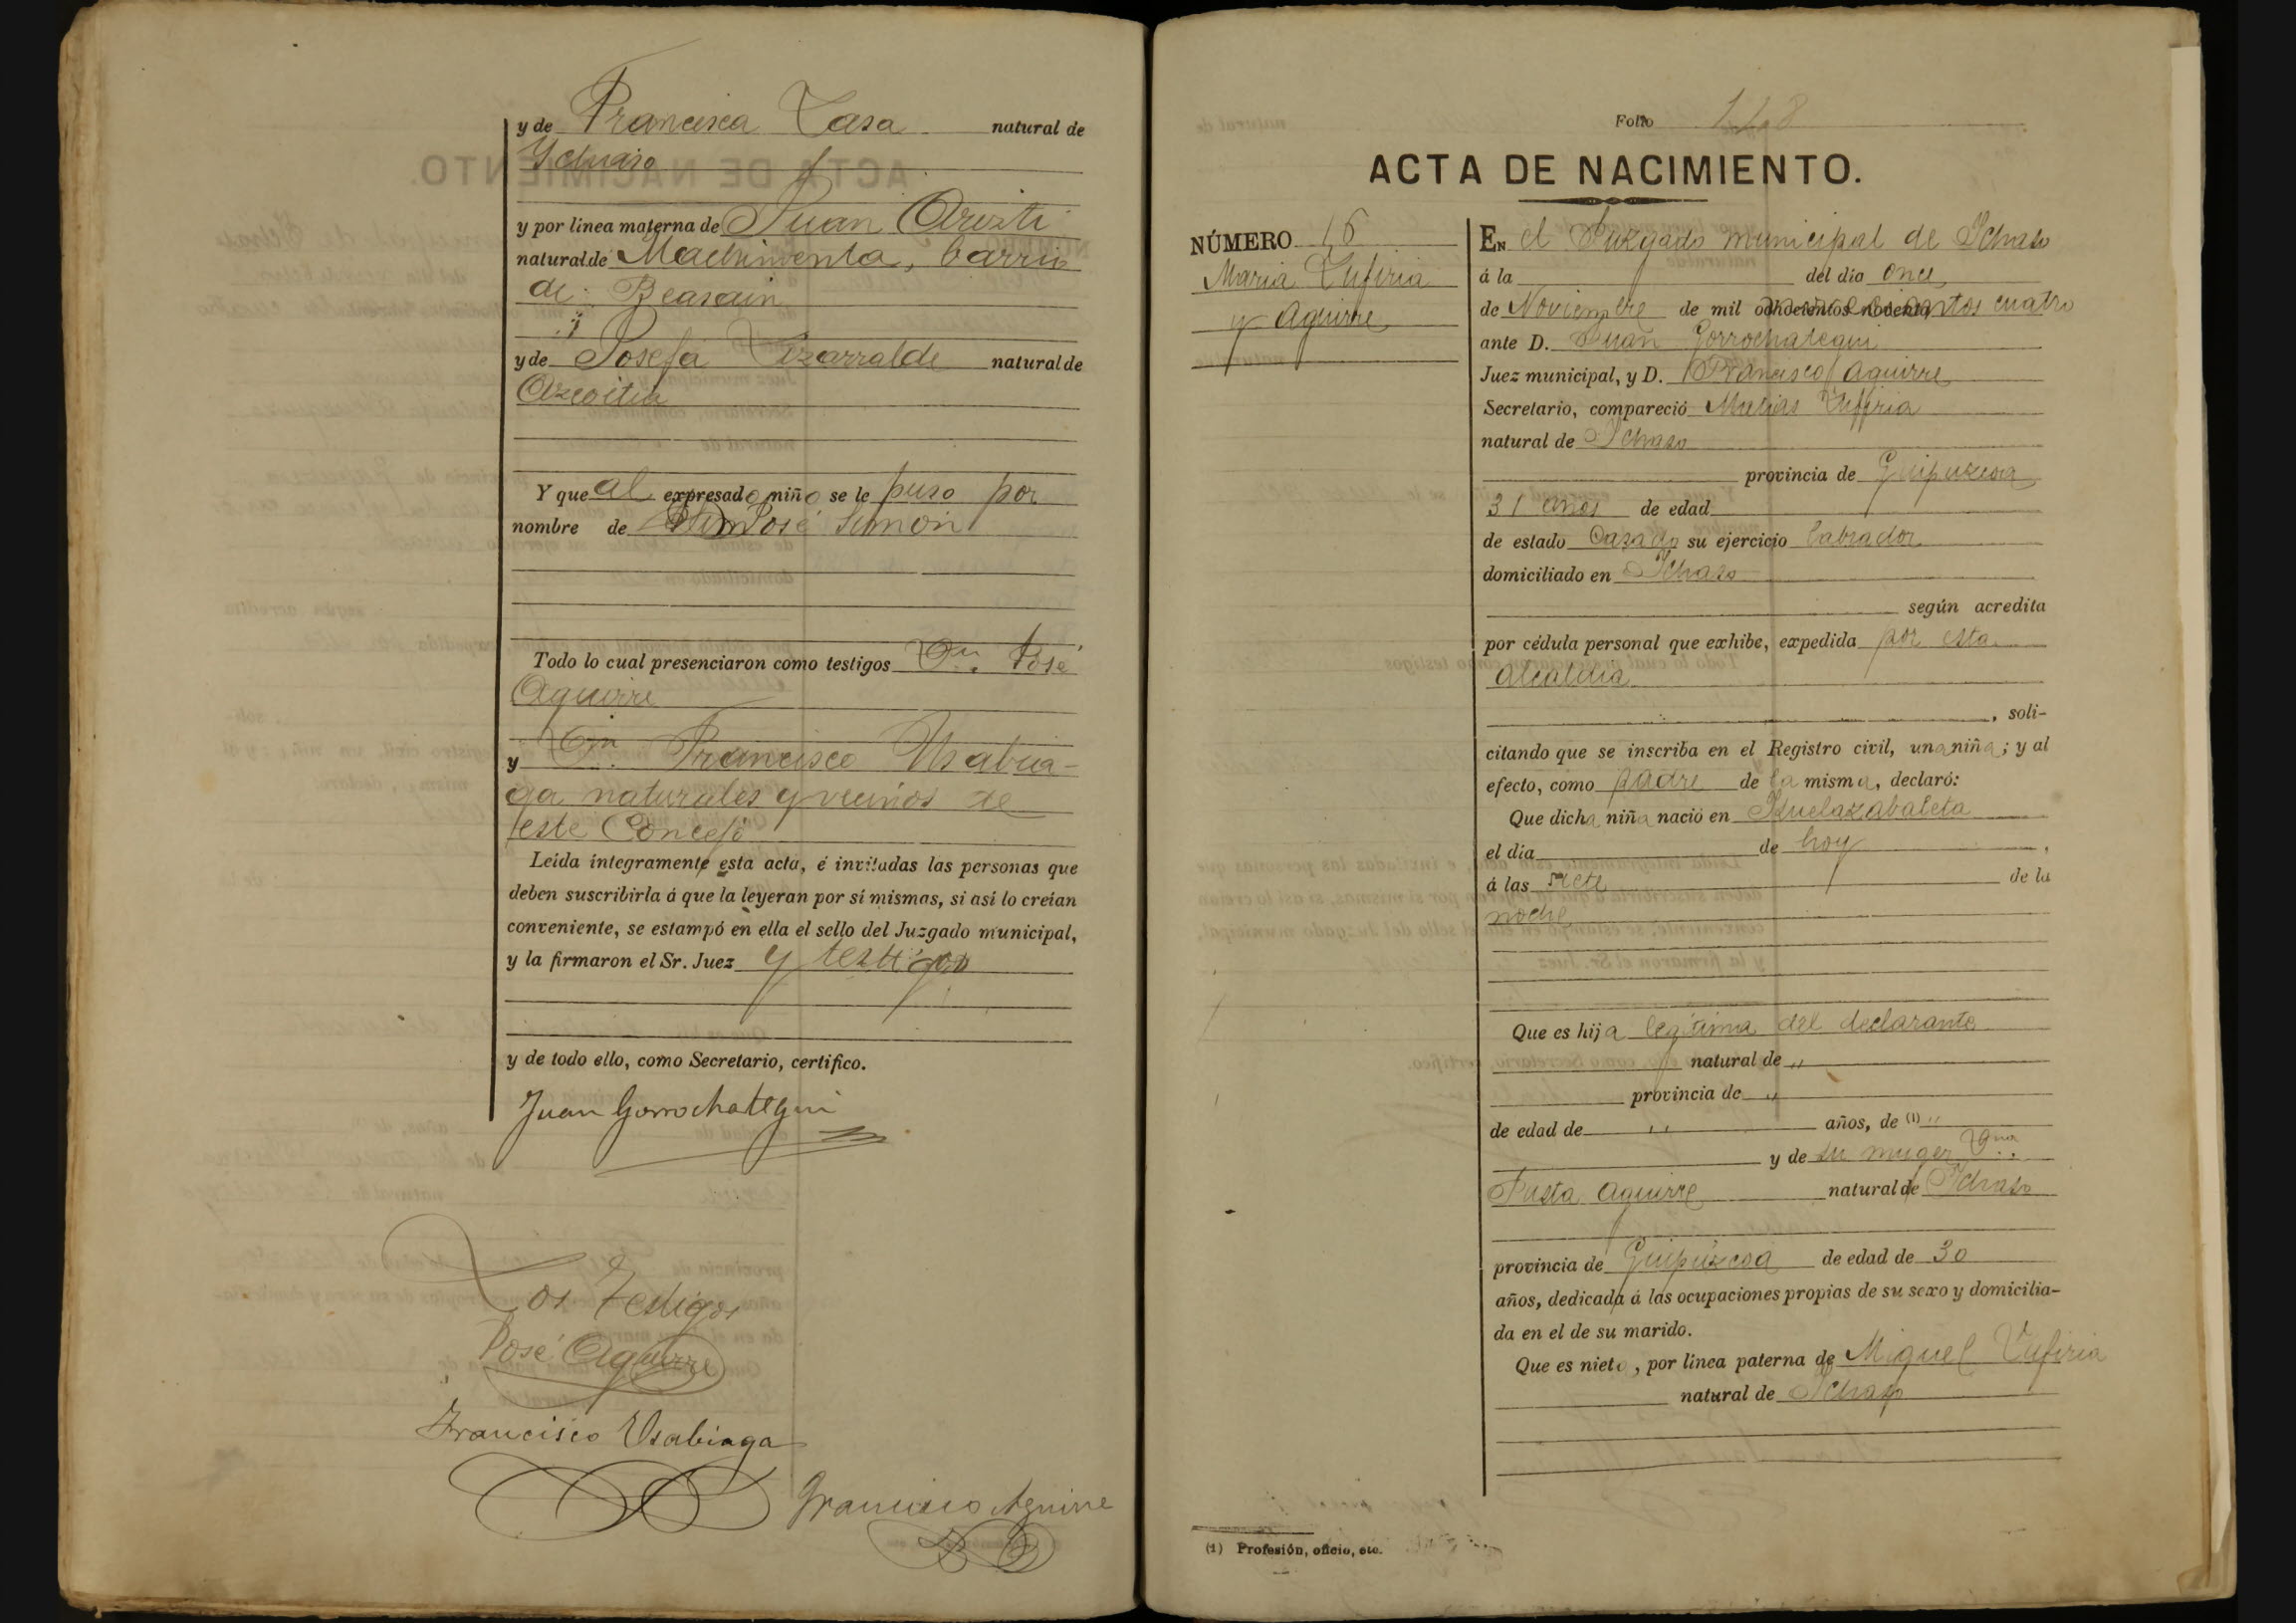 y de Francisca Casa natural de
Ychaso
y por linea materna de Juan Aristi
natural de Machinventa, barrio
de Beasain
y de Josefa Lizarralde natural de
Azcoitia
Y que al expresado niño se le puso por
nombre de José Simon
Todo lo cual presenciaron como testigos Dn. José
Aguirre
y Dn. Francisco Usabia-
ga naturales y vecinos de
este Concejo
Leída íntegramente esta acta, é invitadas las personas que
deben suscribirla á que la leyeran por sí mismas, si así lo creían
conveniente, se estampó en ella el sello del Juzgado municipal,
y la firmaron el Sr. Juez y testigos
y de todo ello, como Secretario, certifico.
Juan Gorrochategui
Los testigos
José Aguirre
Francisco Usabiaga
Francisco Aguirre
Folio 118
ACTA DE NACIMIENTO.
NÚMERO 16
Maria Tufiria
y Aguirre
EN el Juzgado municipal de Ichaso
á la del día once
de Noviembre de mil ochocientos noventa novecientos cuatro
ante D. Juan Gorrochategui
Juez municipal, y D. Francisco Aguirre
Secretario, compareció Matias Tuffiria
natural de Ichaso
provincia de Guipuzcoa
31 años de edad
de estado Casado su ejercicio labrador
domiciliado en Ichaso
según acredita
por cédula personal que exhibe, expedida por esta
Alcaldia
, soli-
citando que se inscriba en el Registro civil, una niña; y al
efecto, como padre de la misma, declaró:
Que dicha niña nació en
el día de hoy,
á las siete de la
noche
Que es hija legitima del declarante
natural de "
provincia de "
de edad de " años, de (1) "
y de su muger Dña.
Justa Aguirre natural de Ichaso
provincia de Guipúzcoa de edad de 30
años, dedicada á las ocupaciones propias de su sexo y domicilia-
da en el de su marido.
Que es nieta, por línea paterna de Miguel Tufiria
natural de Ichaso
(1) Profesión, oficio, etc.